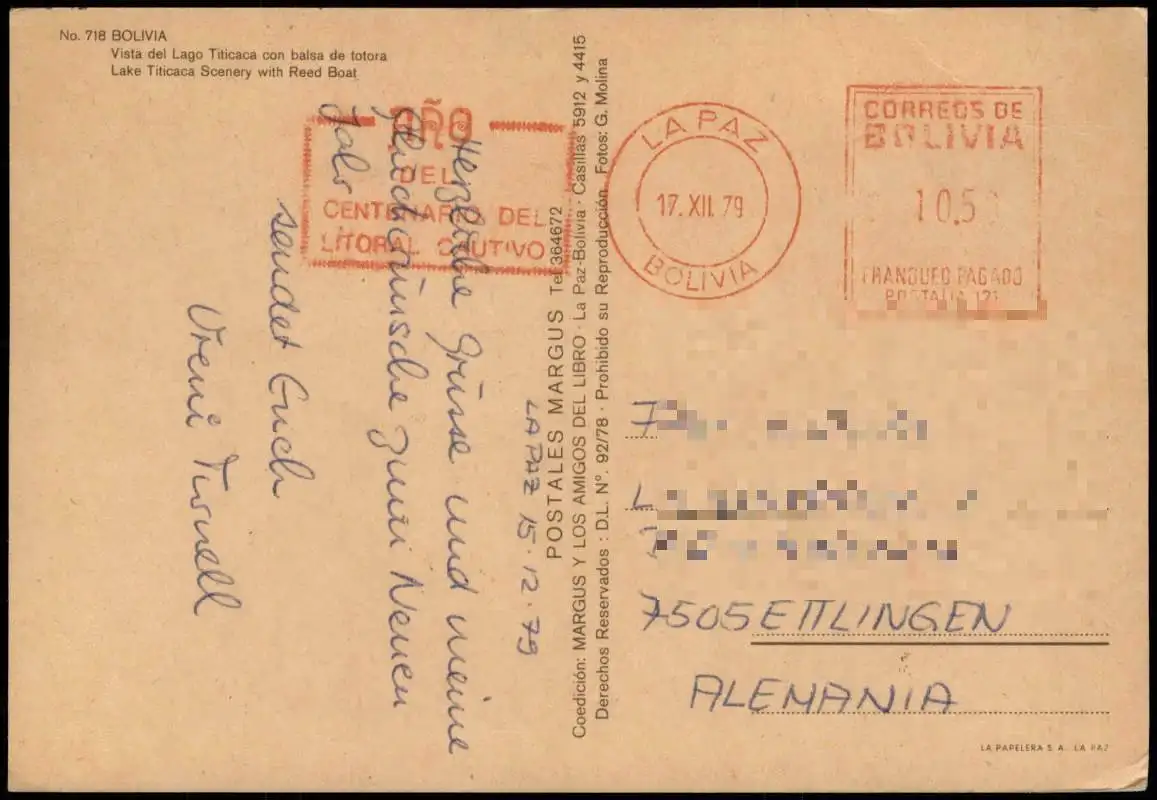 No. 718 BOLIVIA
Vista del Lago Titicaca con balsa de totora
Lake Titicaca Scenery with Reed Boat
AÑO
DEL
CENTENARIO DEL
LITORAL CAUTIVO
LA PAZ
17. XII. 79
BOLIVIA
CORREOS DE
BOLIVIA
10.5
FRANQUEO PAGADO
POSTALIA 121
LA PAZ 15.12.79
Herzliche Grüsse und meine
Glückwünsche zum Neuen
Jahr
sendet Euch
Vreni
POSTALES MARGUS Tel. 364672
Coedición: MARGUS Y LOS AMIGOS DEL LIBRO · La Paz-Bolivia · Casillas 5912 y 4415
Derechos Reservados : D.L. Nº. 92/78 · Prohibido su Reproducción Fotos: G. Molina
7505 ETTLINGEN
ALEMANIA
LA PAPELERA S.A. LA PAZ